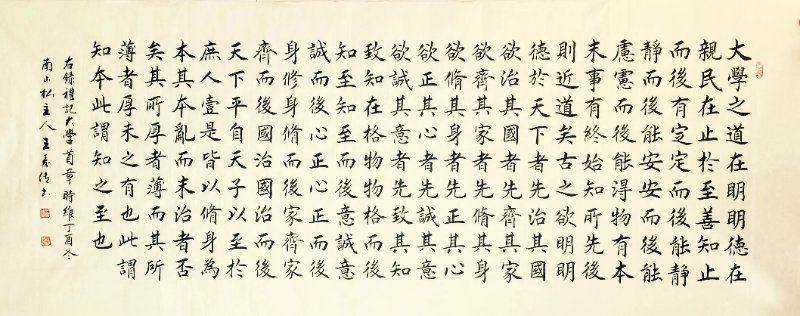 大學之道在明明德在
親民在止於至善知止
而後有定定而後能靜
靜而後能安安而後能
慮慮而後能得物有本
末事有終始知所先後
則近道矣古之欲明明
德於天下者先治其國
欲治其國者先齊其家
欲齊其家者先脩其身
欲脩其身者先正其心
欲正其心者先誠其意
欲誠其意者先致其知
致知在格物物格而後
知至知至而后意誠意
誠而後心正心正而後
身修身脩而後家齊家
齊而後國治國治而後
天下平自天子以至於
庶人壹是皆以脩身為
本其本亂而末治者否
矣其所厚者薄而其所
薄者厚未之有也此謂
知本此謂知之至也
右錄禮記大學首章時維丁酉冬
南山松主人王